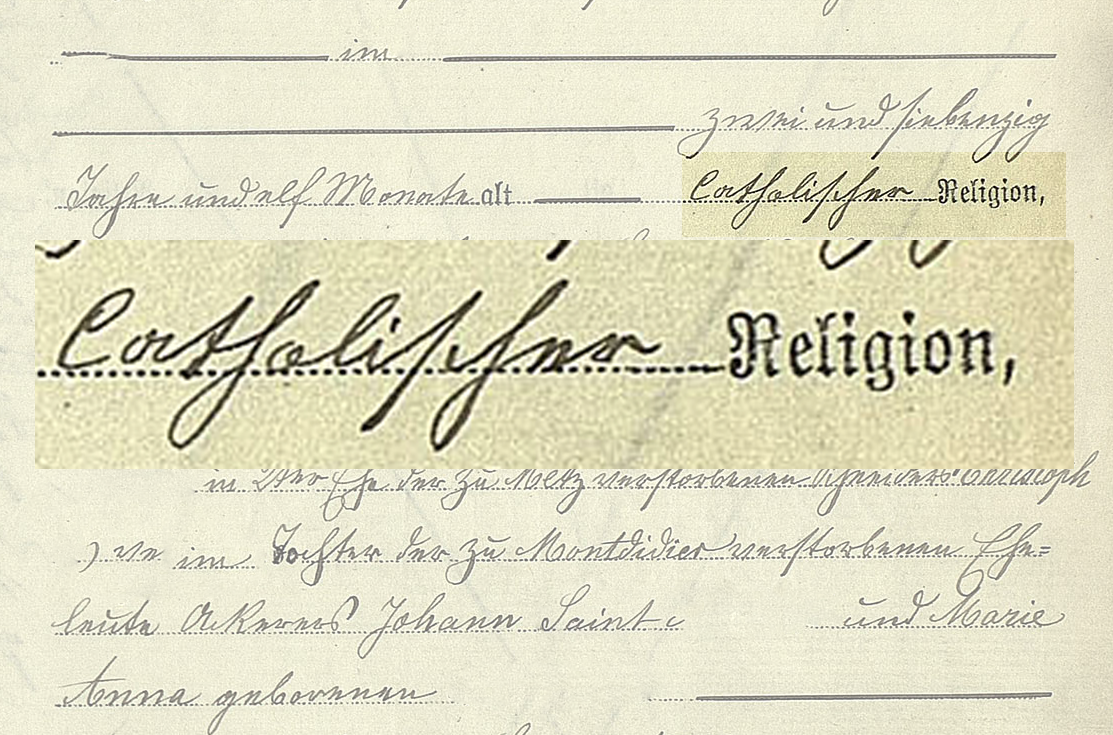 im
zwei und siebenzig
Jahre und elf Monate alt Catholischer Religion,
Catholischer Religion,
in der Ehe der zu Metz verstorbenen Schneiders Christoph
im Tochter der zu Montdidier verstorbenen Ehe=
leute Ackerers Johann Saint- und Marie
Anna geborenen